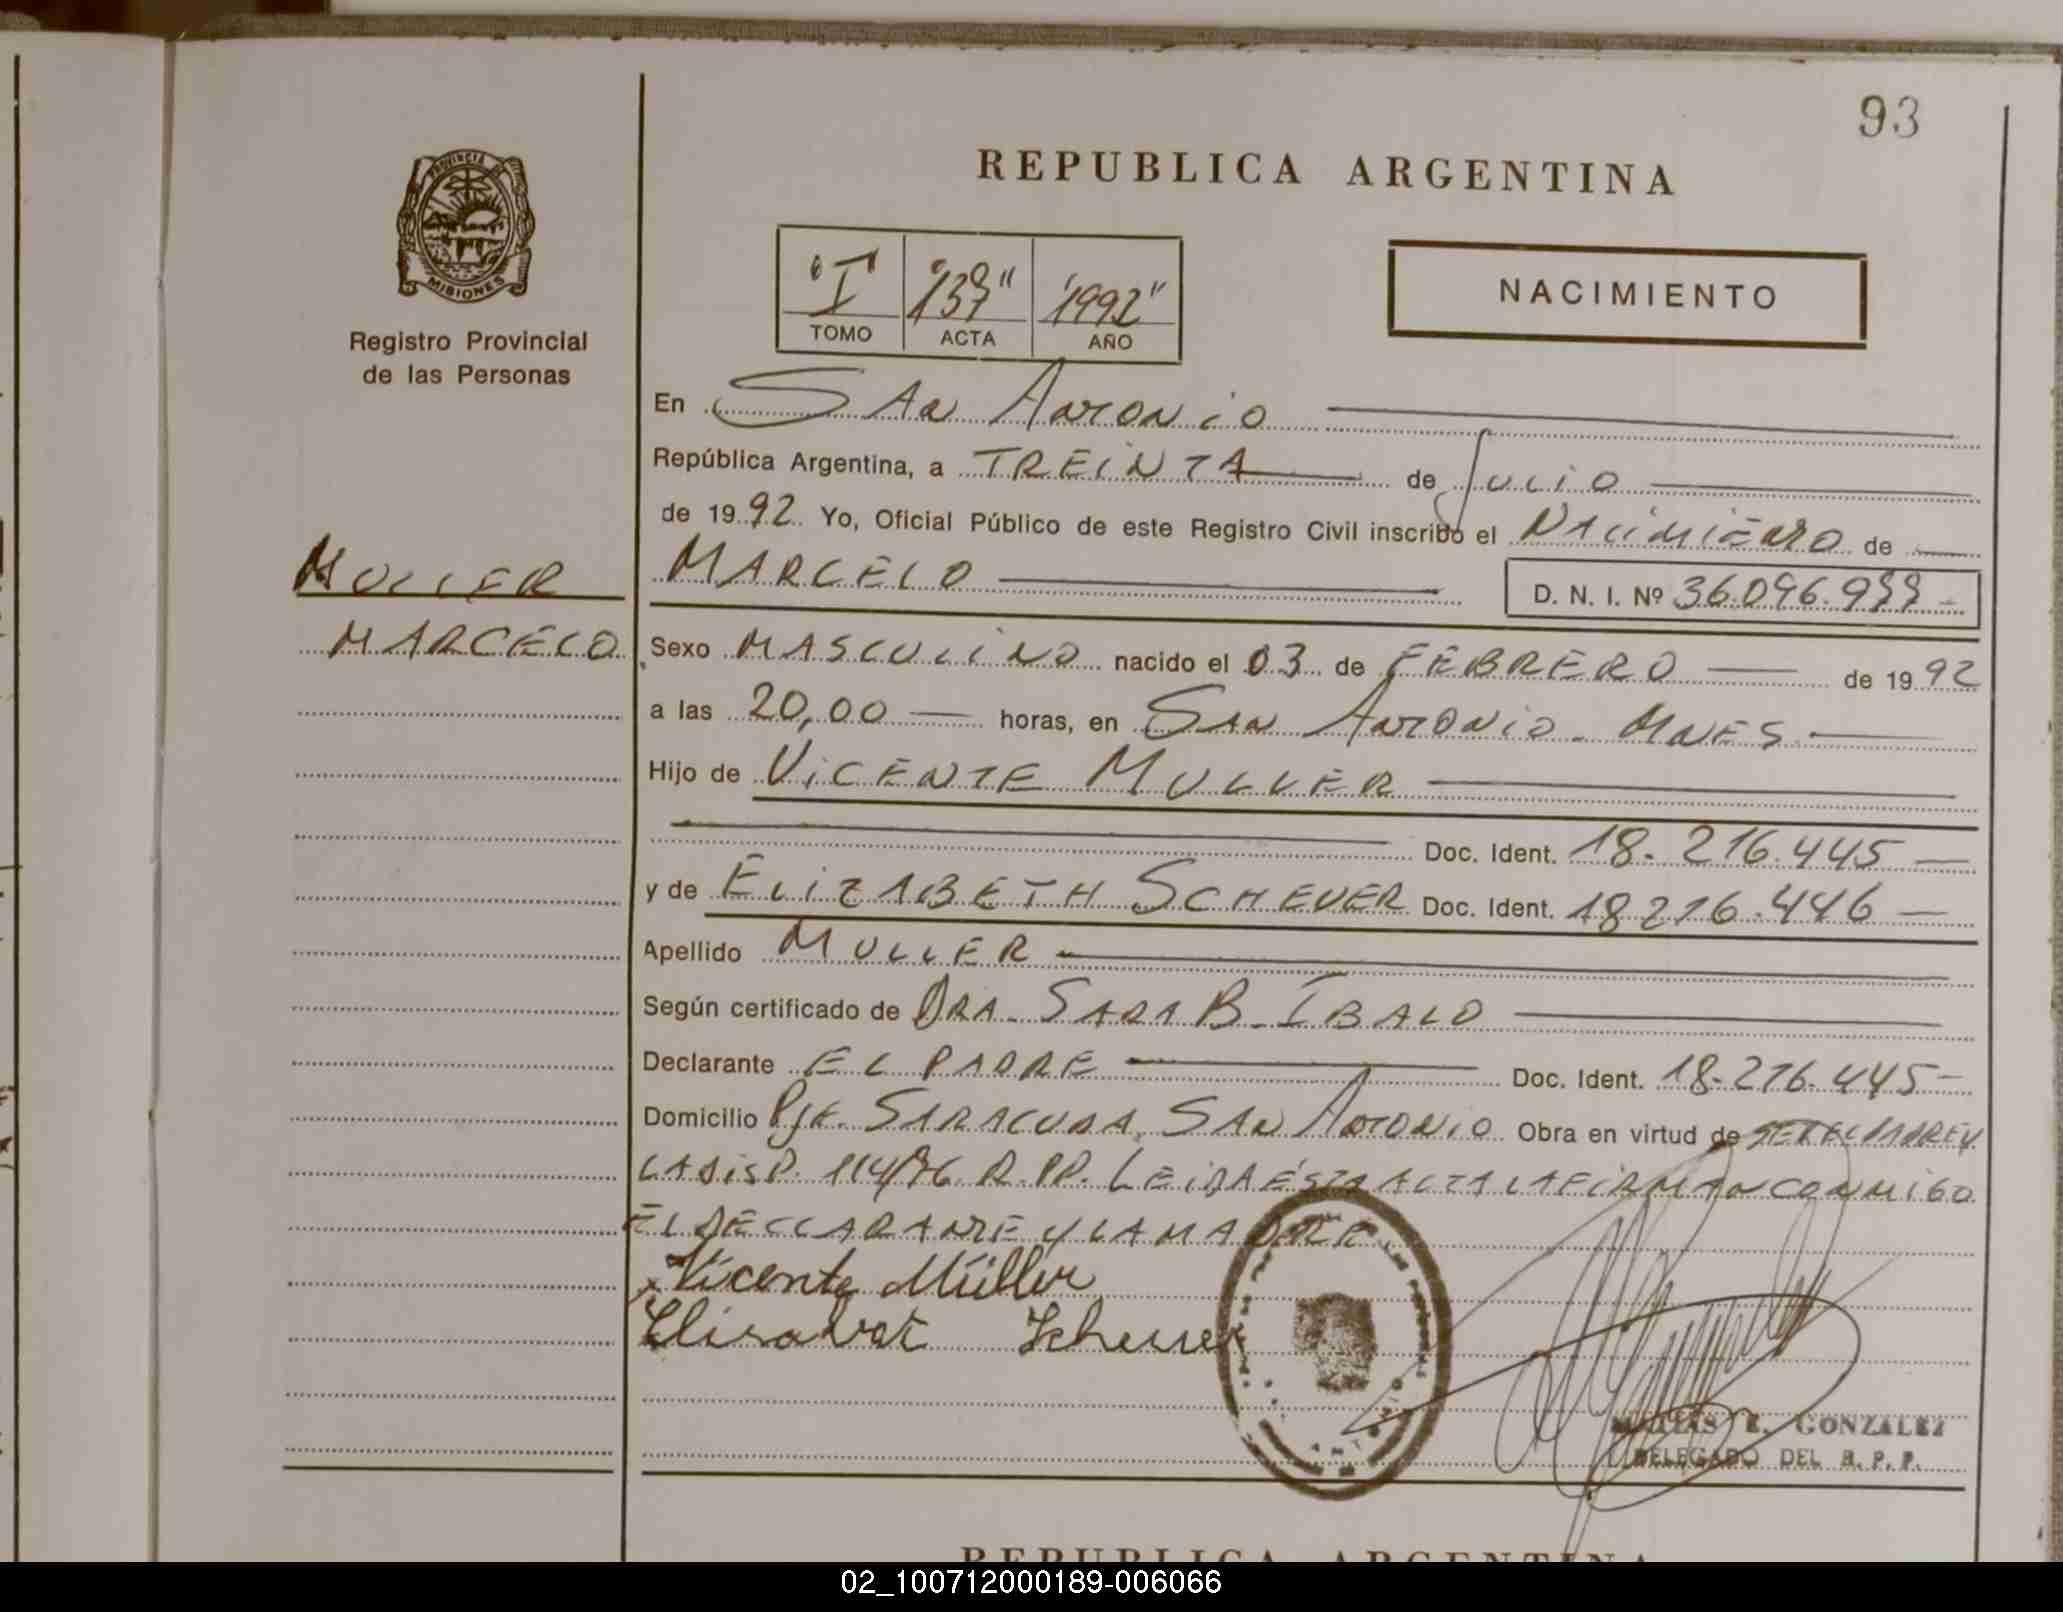 93
REPUBLICA ARGENTINA
PROVINCIA DE
MISIONES
Registro Provincial
de las Personas
"I" "137" "1992"
TOMO ACTA AÑO
NACIMIENTO
En SAN ANTONIO
República Argentina, a TREINTA de JULIO
de 1992 Yo, Oficial Público de este Registro Civil inscribo el NACIMIENTO de
MULLER
MARCELO
MARCELO D. N. I. Nº
Sexo MASCULINO nacido el 03 de FEBRERO de 1992
a las 20,00 horas, en SAN ANTONIO - MNES
Hijo de VICENTE MULLER
Doc. Ident. 18.216.445
y de ELIZABETH SCHEUER Doc. Ident. 18216.446
Apellido MULLER
Según certificado de DRA. SARA B. IBALO
Declarante EL PADRE Doc. Ident. 18.216.445
Domicilio PJE. SARACURA, SAN ANTONIO Obra en virtud de SER EL PADRE Y
LA DISP. 114/76 R.PP. LEIDA ÉSTA ACTA LA FIRMAN CONMIGO
EL DECLARANTE Y LA MADRE.
Vicente Müller
Elisabet Scheuer
E. GONZALEZ
DELEGADO DEL R. P. P.
REPUBLICA ARGENTINA
02_100712000189-006066